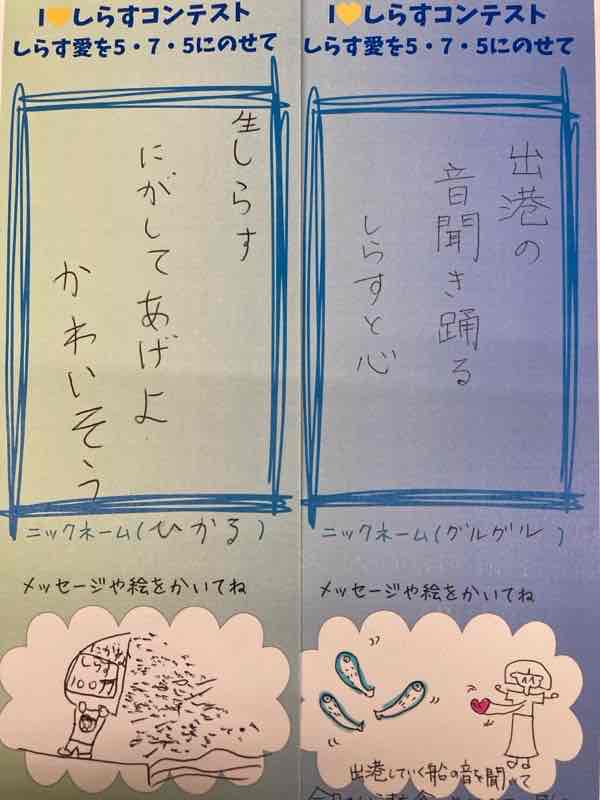 I💛しらすコンテスト
しらす愛を5・7・5にのせて
生しらす
にがしてあげよ
かわいそう
ニックネーム(ひかる)
メッセージや絵をかいてね
しらす
100万
I💛しらすコンテスト
しらす愛を5・7・5にのせて
出港の
音聞き踊る
しらすと心
ニックネーム(グルグル)
メッセージや絵をかいてね
出港していく船の音を聞いて